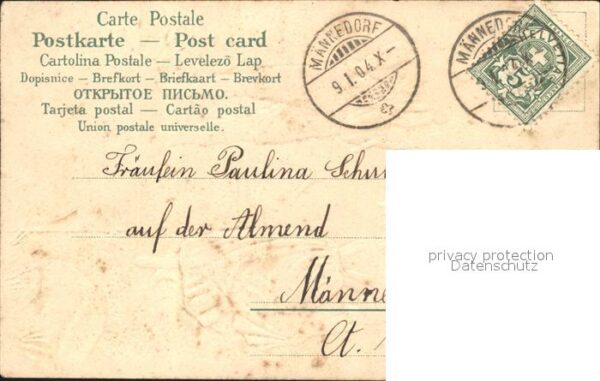 Carte Postale
Postkarte — Post card
Cartolina Postale — Levelező Lap
Dopisnice — Brefkort — Briefkaart — Brevkort
ОТКРЫТОЕ ПИСЬМО.
Tarjeta postal — Cartão postal
Union postale universelle.
MÄNNEDORF
9.I.04.X–
MÄNNEDO
HELVETI
5
Fräulein Paulina Schu
auf der Almend
Männe
Ct.
privacy protection
Datenschutz